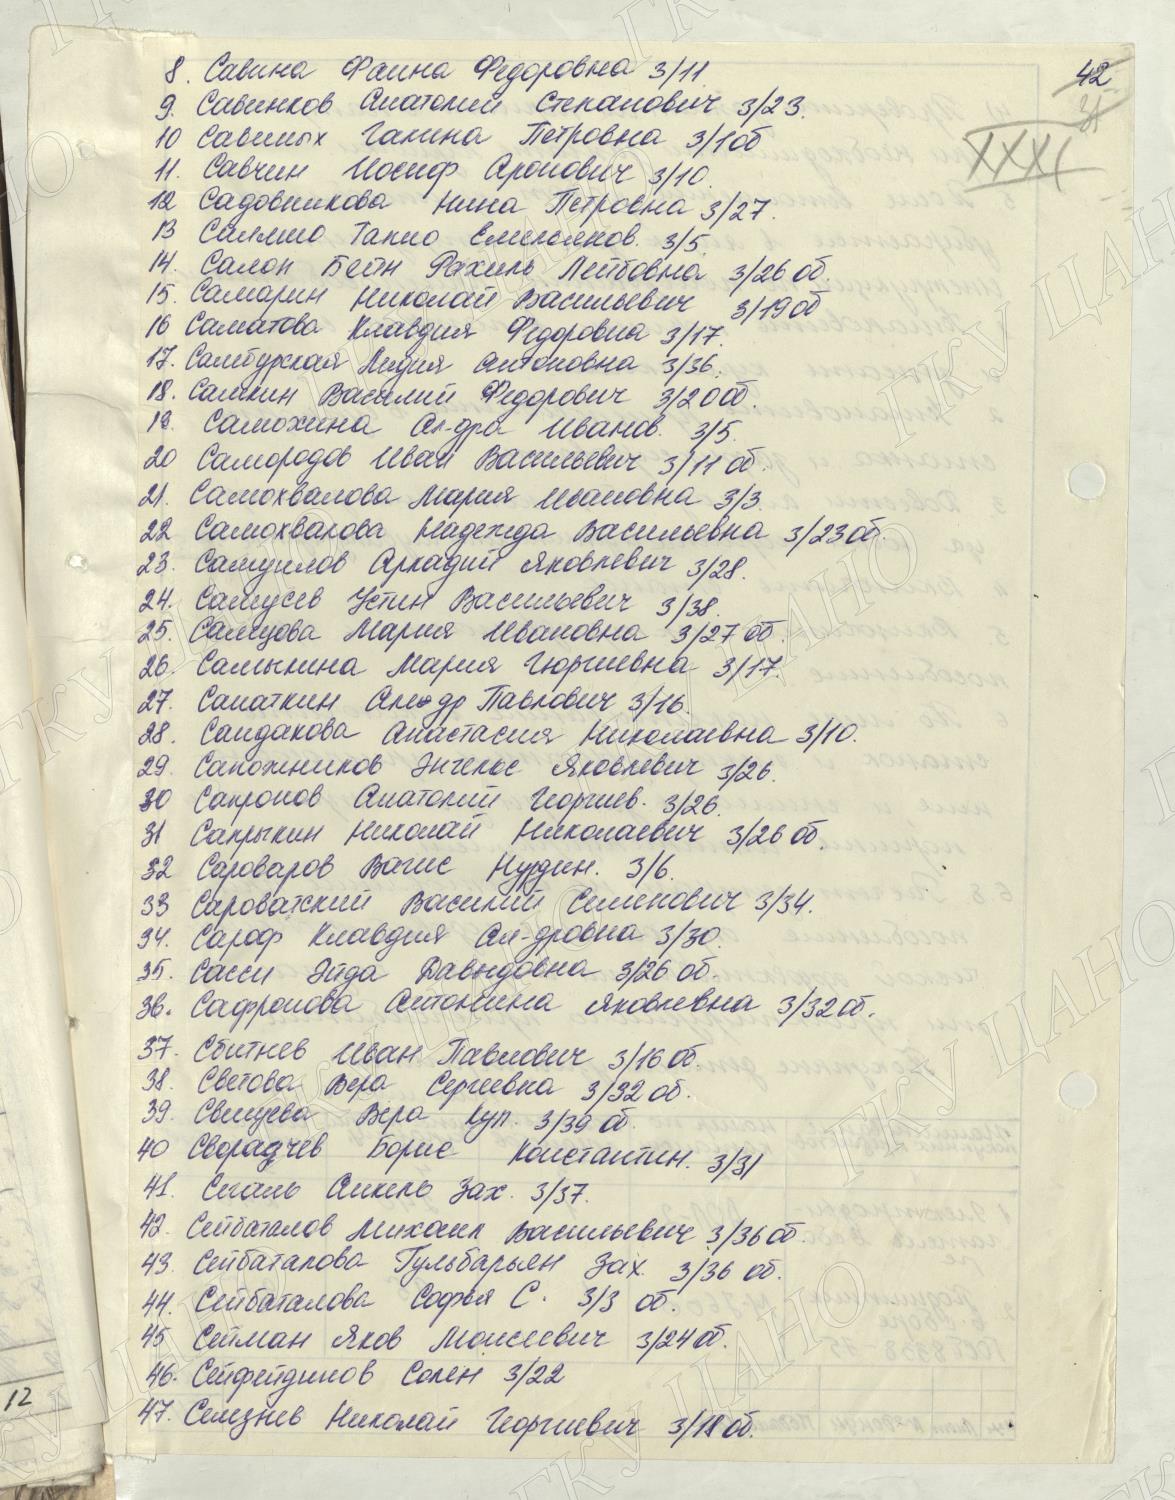 42
XXXI
8. Савина Фаина Федоровна 3/11
9. Савинков Анатолий Степанович 3/23.
10 Савиных Галина Петровна 3/1об
11. Савчин Иосиф Аронович 3/10.
12 Садовникова Нина Петровна 3/27.
13 Саляшо Танио Емельянов. 3/5.
14. Салон Бейн Рахиль Лейбовна 3/26 об.
15. Самарин Николай Васильевич 3/19об
16 Саматова Клавдия Федоровна 3/17.
17. Самбурская Лидия Антоновна 3/36.
18. Самкин Василий Федорович 3/20об.
19. Самохина Ал-дра Иванов. 3/5.
20 Самородов Иван Васильевич 3/11 об.
21. Самохвалова Мария Ивановна 3/3.
22 Самохвалова Надежда Васильевна 3/23об.
23. Самуилов Аркадий Яковлевич 3/28.
24. Самусев Устин Васильевич 3/38.
25. Самцова Мария Ивановна 3/27 об.
26. Самыкина Мария Георгиевна 3/17.
27. Санаткин Алексдр Павлович 3/16.
28. Сандакова Анастасия Николаевна 3/10.
29. Сапожников Энгельс Яковлевич 3/26.
30 Сапронов Анатолий Георгиев. 3/26.
31 Сапрыкин Николай Николаевич 3/26 об.
32 Сароваров Вагис Нурдин. 3/6.
33 Сароватский Василий Семенович 3/34.
34. Сараф Клавдия Ал-дровна 3/30.
35. Сасси Эйда Давыдовна 3/26 об.
36. Сафронова Антонина Яковлевна 3/32об.
37. Сбитнев Иван Павлович 3/16 об.
38. Светова Вера Сергеевна 3/32 об.
39. Свищева Вера Куп. 3/39 об.
40 Сворадчев Борис Константин. 3/31
41. Сегаль Анкель Зах. 3/37.
42. Сейбаталов Михаил Васильевич 3/36 об.
43. Сейбаталова Гульбарьян Зах. 3/36 об.
44. Сейбаталова Софья С. 3/3 об.
45 Сейман Яков Моисеевич 3/24 об.
46. Сейфейдинов Солен 3/22
47. Селезнев Николай Георгиевич 3/18 об.
12